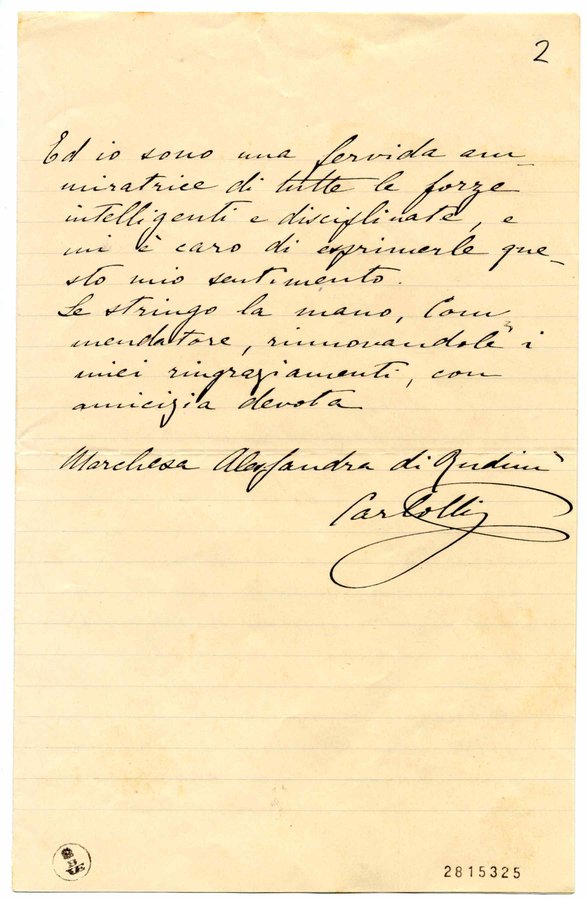 2
Ed io sono una fervida am-
miratrice di tutte le forze
intelligenti e disciplinate, e
mi è caro di esprimerle que-
sto mio sentimento.
Le stringo la mano, Com
mendatore, rinnovandole i
miei ringraziamenti, con
amicizia devota
Marchesa Alessandra di Rudinì
Carlotti
2815325